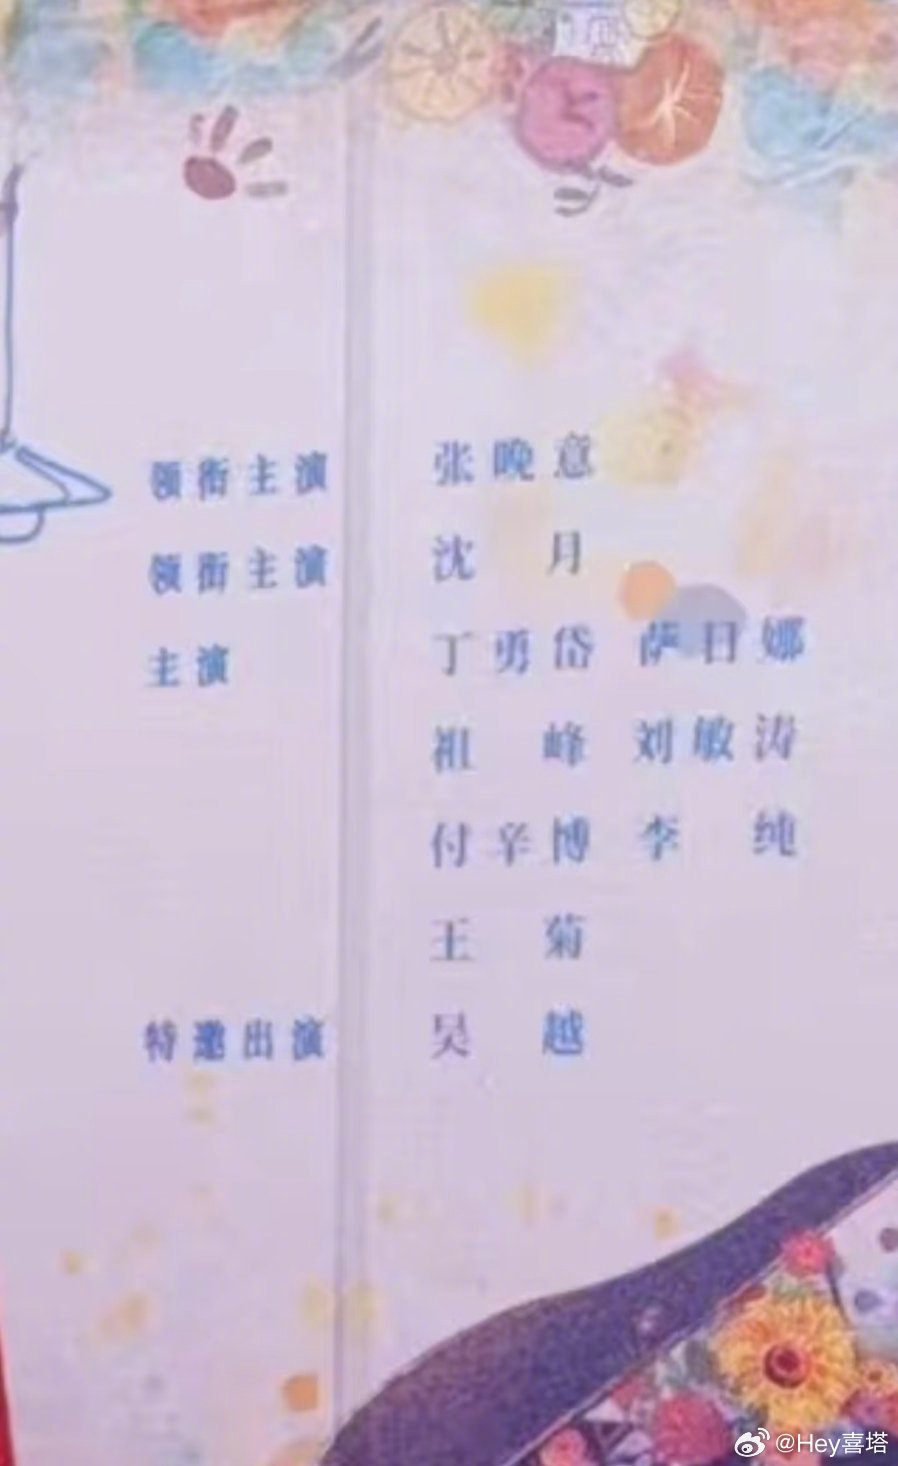 领衔主演 张晚意
领衔主演 沈月
主演 丁勇岱 萨日娜
祖峰 刘敏涛
付辛博 李纯
王菊
特邀出演 吴越
@Hey喜塔